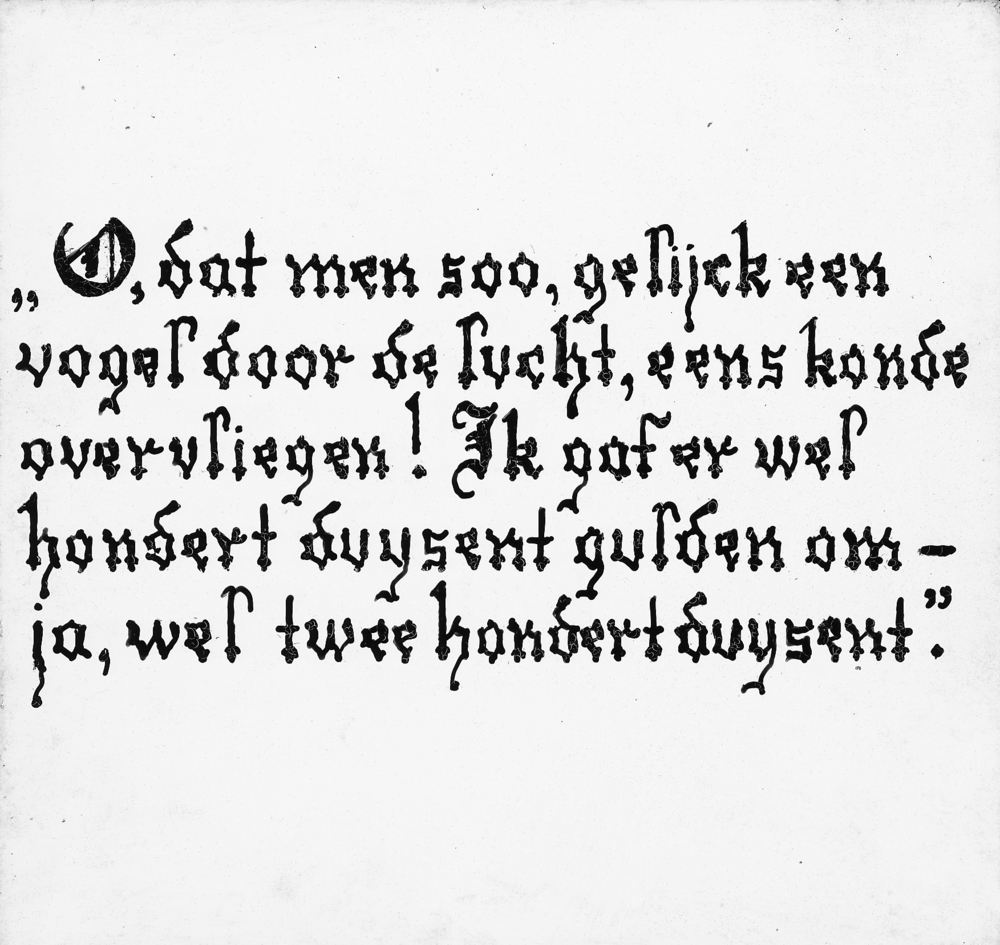 „O, dat men soo, gelijck een
vogel door de lucht, eens konde
overvliegen! Ik gaf er wel
hondert duysent gulden om –
ja, wel twee hondert duysent”.